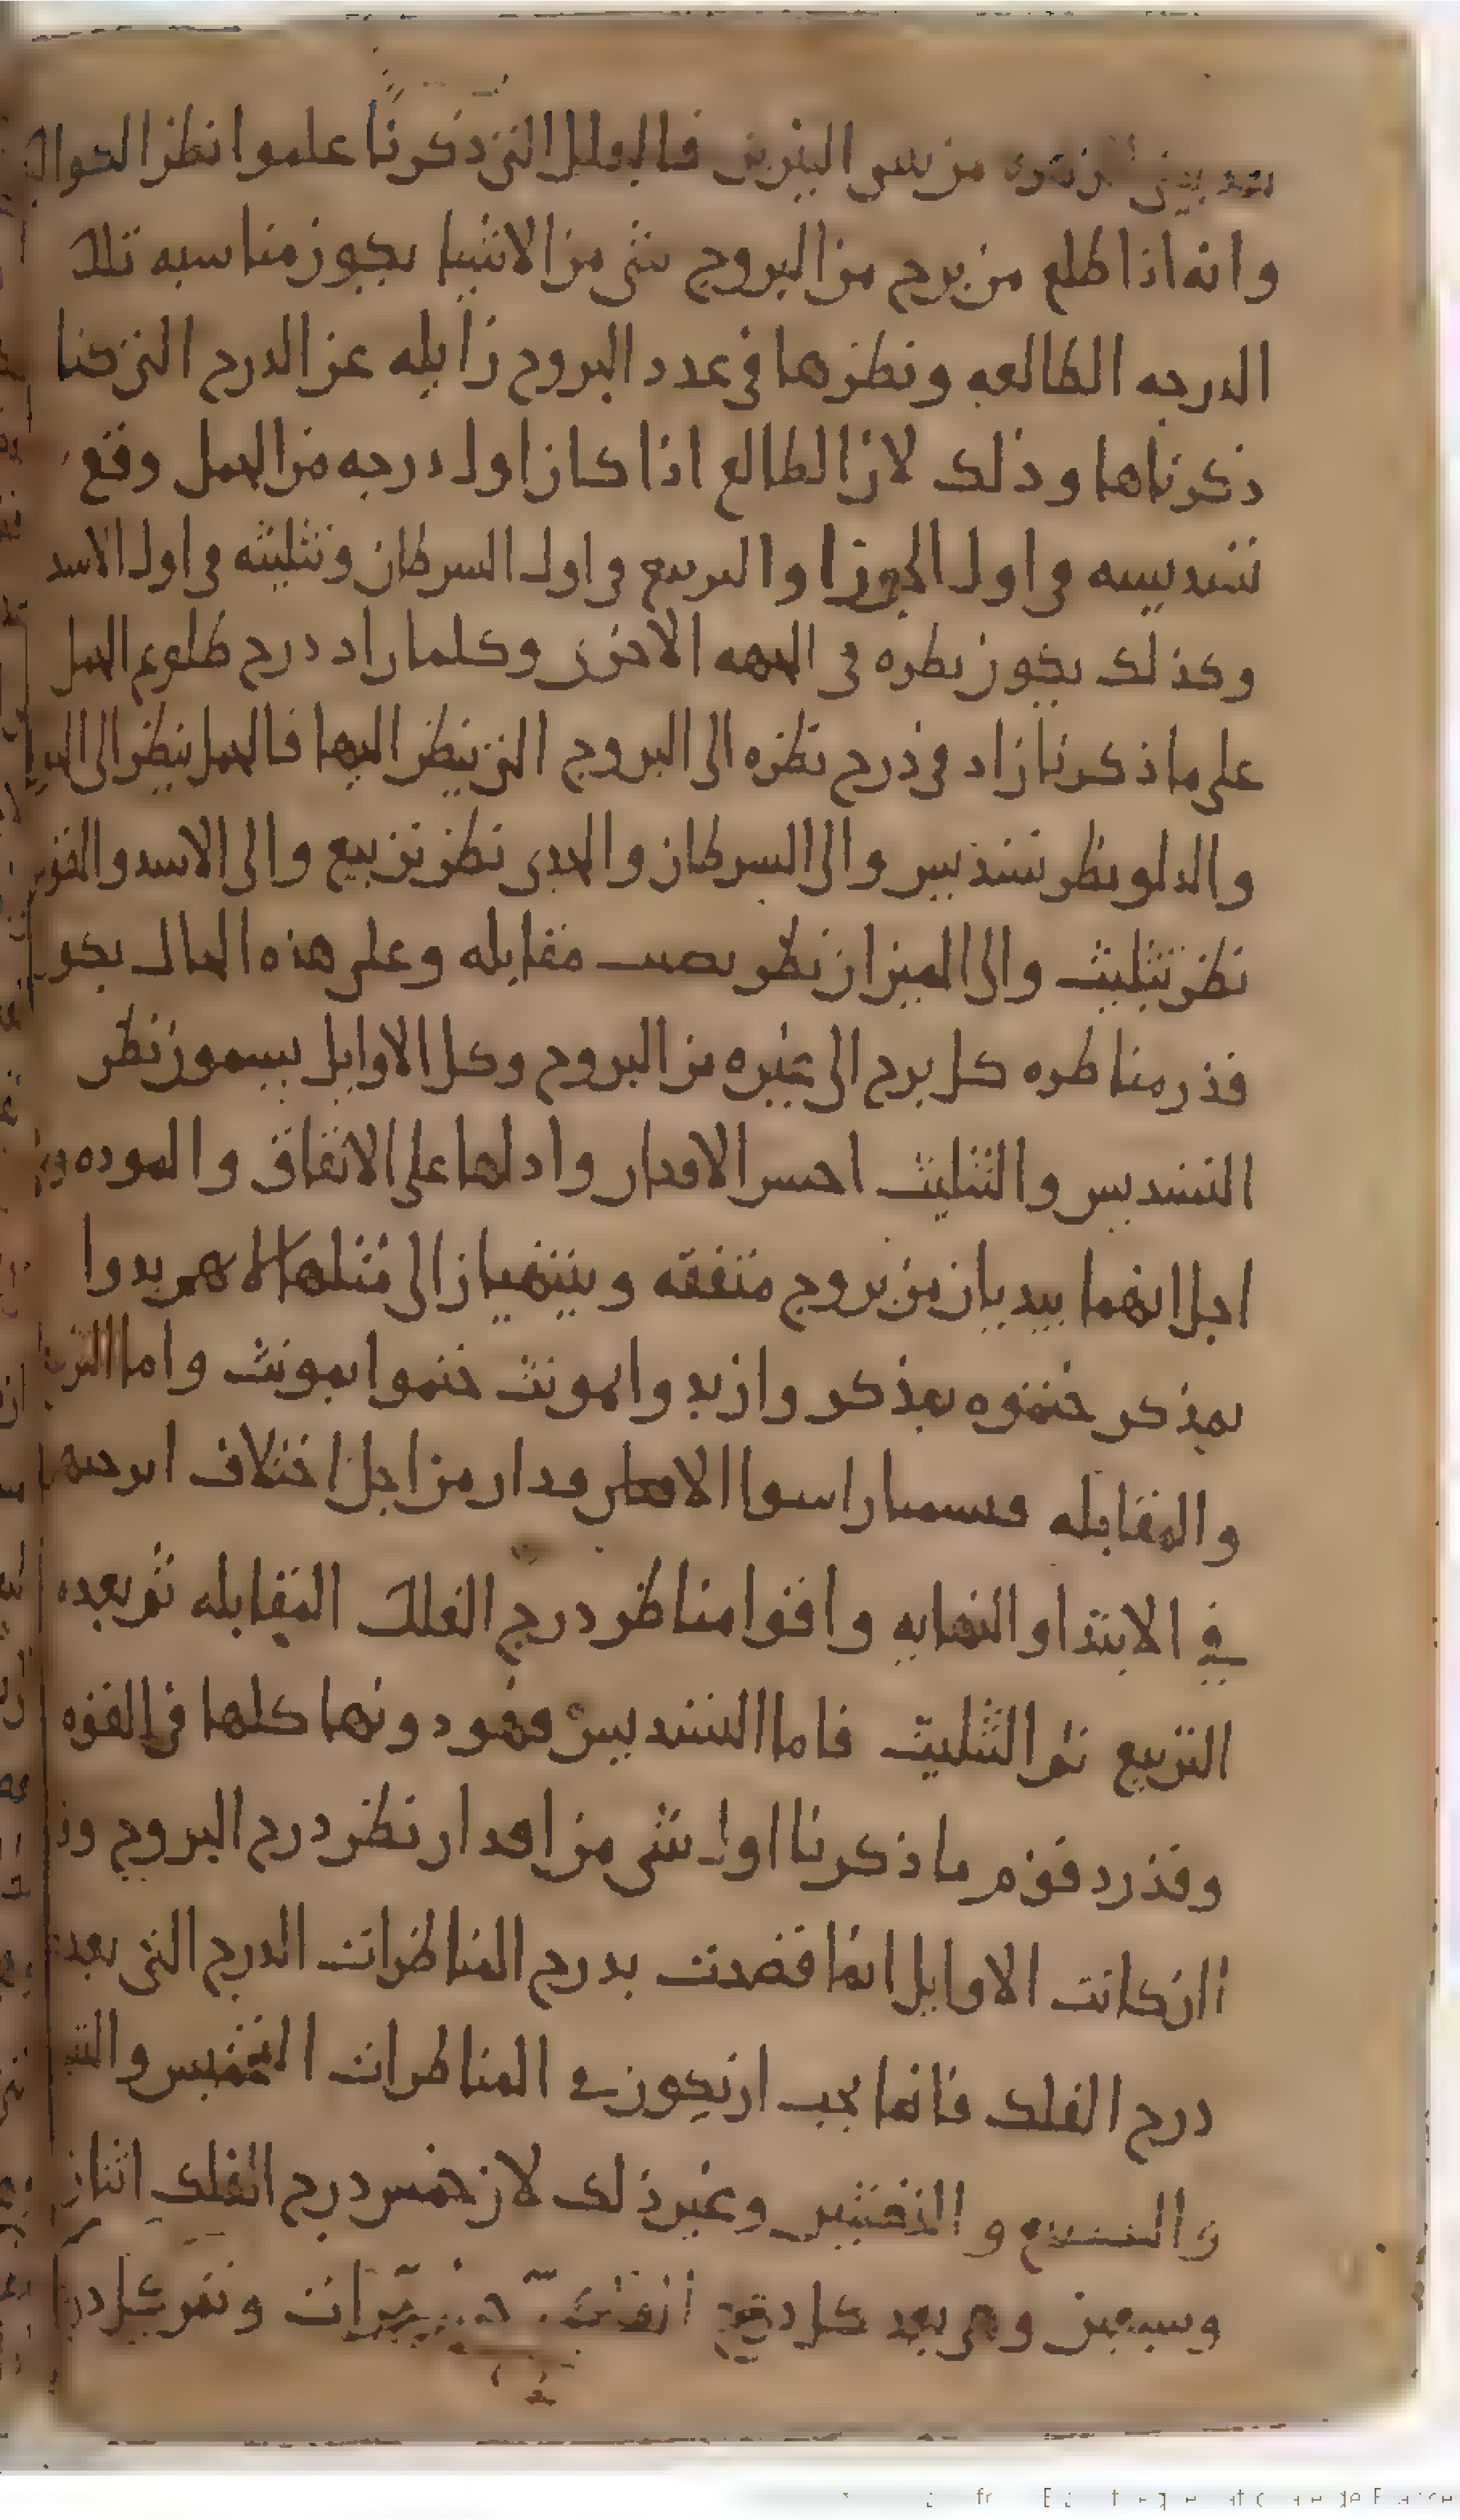 من سر النيرين فالعلل التي ذكرنا علموا نظر الكواكب
وانه اذا طلع من برج من البروج شي من الاشيا يكون مناسبه تلك
الدرجه الطالعه ونظرها في عدد البروج زايله عن الدرج التي كنا
ذكرناها وذلك لان الطالع اذا كان اول درجه من الحمل وقع
تسديسه في اول الجوزا والتربيع في اول السرطان وتثليثه في اول الاسد
وكذلك يكون نظره في الجهه الاخرى وكلما زاد درج طلوع الحمل
على ما ذكرنا زاد في درج نظره الى البروج التي ينظر اليها فالحمل ينظر الى
والدلو نظر تسديس والى السرطان والجدي نظر تربيع والى الاسد والقوس
نظر تثليث والى الميزان نظر نصف مقابله وعلى هذه الحال يكون
قدر مناظره كل برج الى غيره من البروج وكل الاوايل يسمون نظر
التسديس والتثليث احسن الاقدار وادلها على الاتفاق والموده
اجل انهما يبديان من بروج متفقه وينتهيان الى مثلها بدوا
بمذكر ختموه بمذكر وان بدوا بمونث ختموا بمونث واما التربيع
والمقابله من اجل اختلاف
في الابتدا والنهايه واقوا مناظر درج الفلك المقابله ثم بعده
التربيع ثم التثليث فاما التسديس فهو دونها كلها في القوه
وقد رد قوم ما ذكرنا اول شي من اقدار نظر درج البروج
ان كانت الاوايل انما قصدت بدرج المناظرات الدرج التي بعد
درج الفلك فانما يجب ان يكون في المناظرات التخميس
والتسبيع وغير ذلك لان خمس درج الفلك اثنان
وسبعين وهي بعد كل